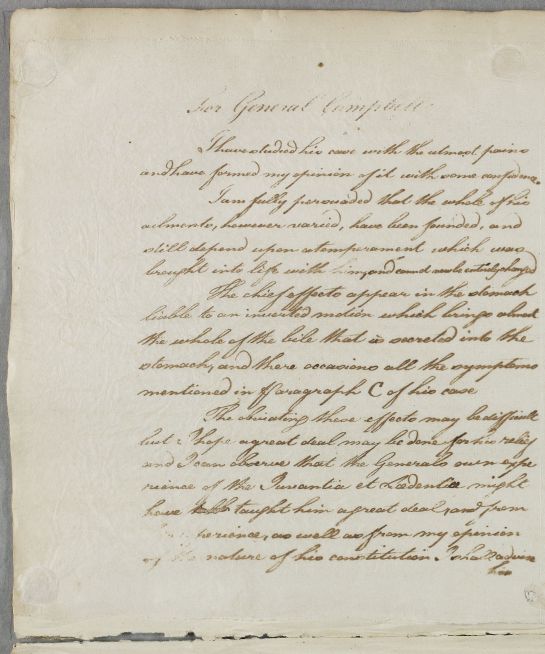 For General Campbell
I have studied his case with the utmost pains
and have formed my opinion of it with some confidence.
I am fully persuaded that the whole of his
ailments, however varied, have been founded, and
still depend upon a temperament which was
brought into life with him, and cannot now be entirely changed
The chief effects appear in the stomach
liable to an inverted motion which brings about
the whole of the bile that is secreted into the
stomach, and there occasions all the symptoms
mentioned in Paragraph C of his case
The obviating these effects may be difficult
but I hope a great deal may be done for his relief
and I can observe that the Generals own expe
rience of the Juvantia et Lædentia might
have taught him a great deal, and from
perience, as well as from my opinion
of the nature of his constitution I shall advise
him